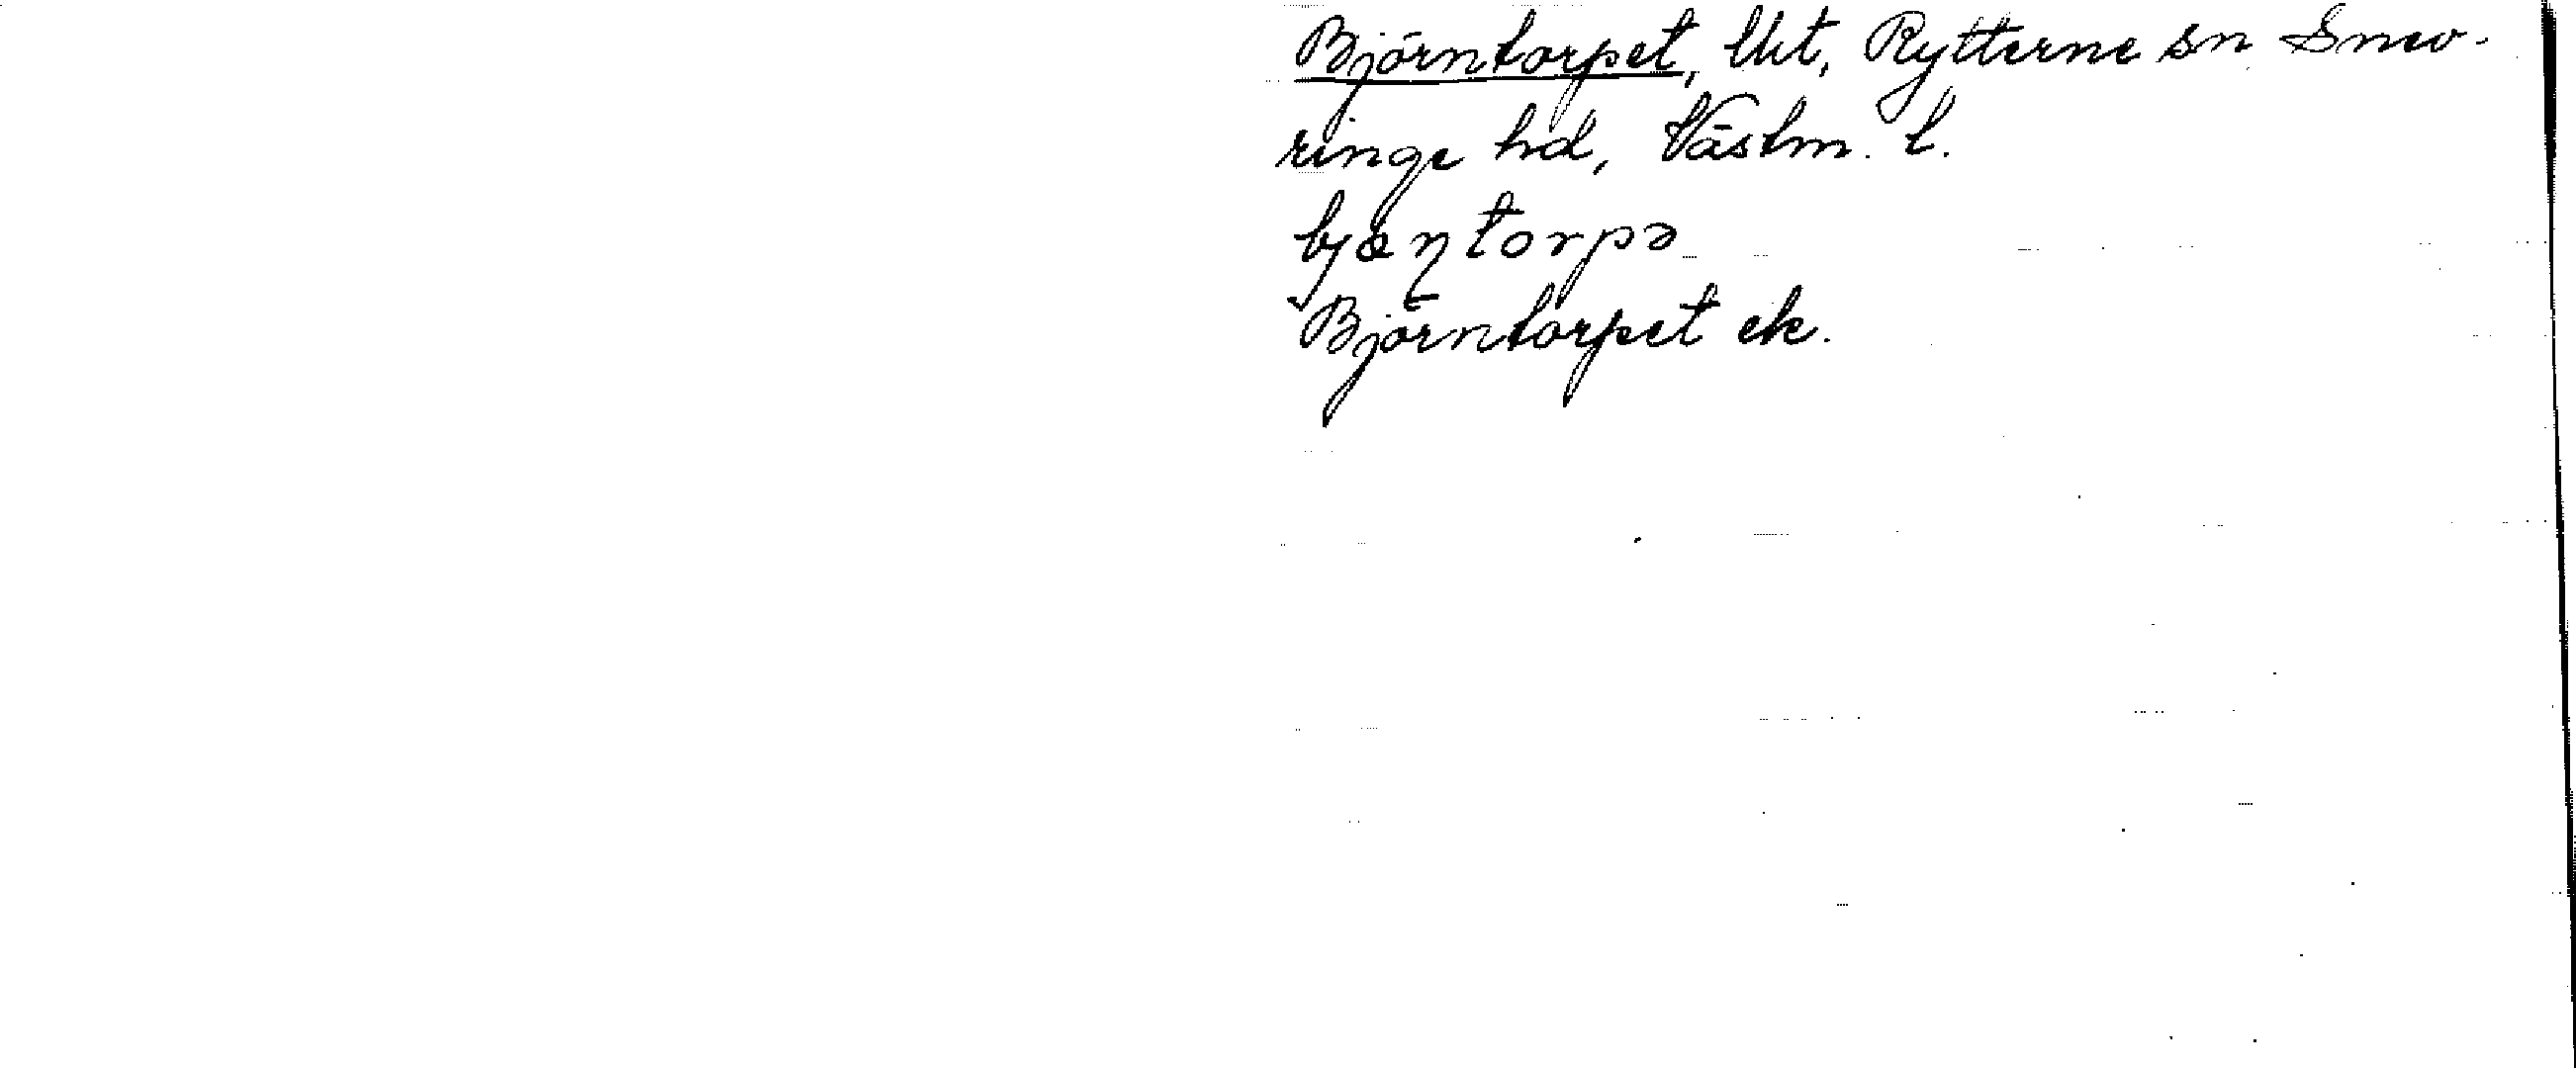 Björntorpet, lht, Rytterne sn Snev-
ringe hd, Västm. l.
bjɵɳtorpə
Björntorpet ek.